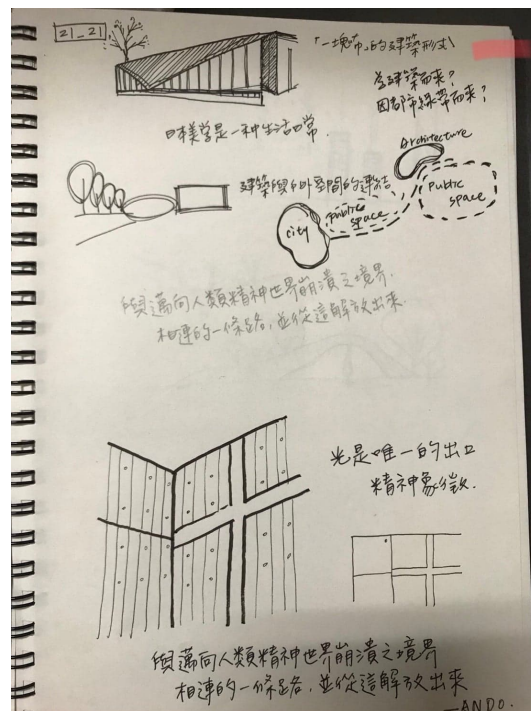 21_21
「一塊布」的建築形式
為建築而來?
因都市綠帶而來?
日本美学是一种生活日常.
Architecture
建築與戶外空間的連結
Public
space
public
space
city
與邁向人類精神世界崩潰之境界.
相連的一條路,並從這解放出來.
光是唯一的出口
精神象徵.
與邁向人類精神世界崩潰之境界
相連的一條路,並從這解放出來
—ANDO.